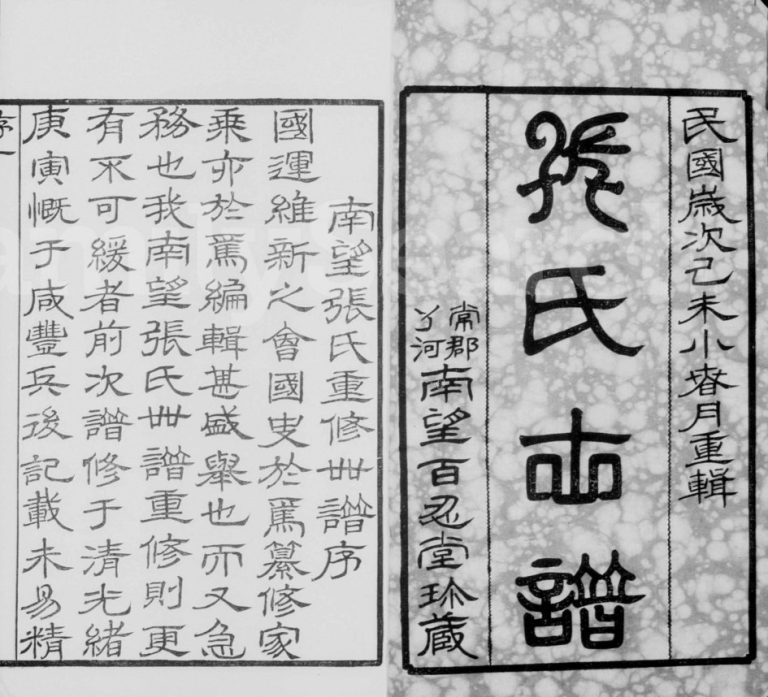 民國歲次己未小春月重輯
張氏世譜
常郡
丫河
南望百忍堂珍藏
南望張氏重修世譜序
國運維新之會國史於焉纂修家
乘亦於焉編輯甚盛舉也而又急
務也我南望張氏世譜重修則更
有不可緩者前次譜修于清光緒
庚寅慨于咸豐兵後記載未易精
序一